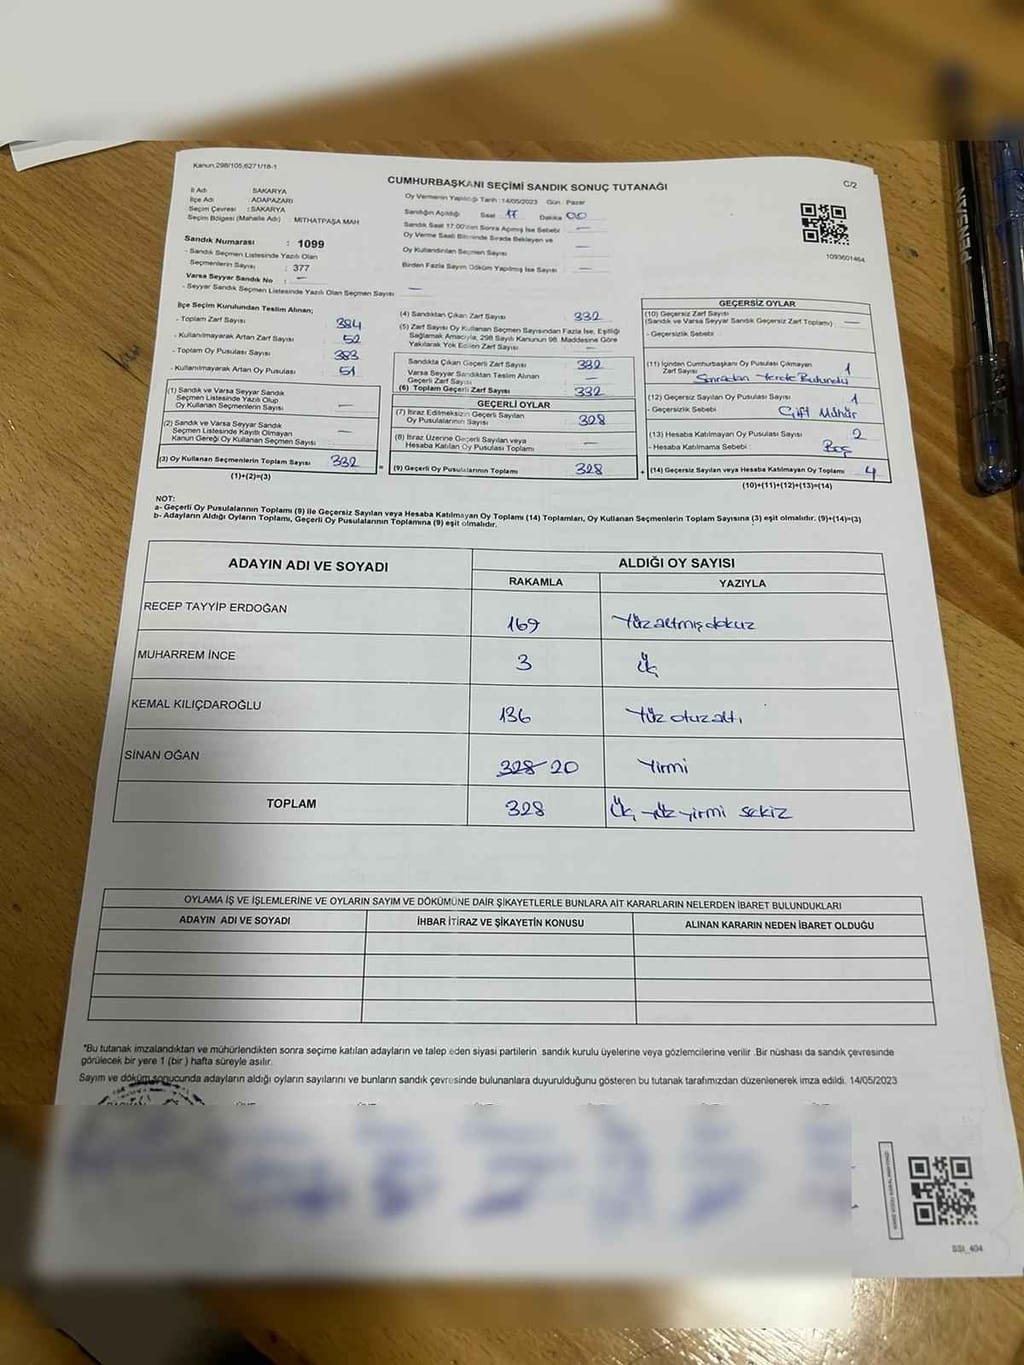 Kanun.298/105,6271/18-1
CUMHURBAŞKANI SEÇİMİ SANDIK SONUÇ TUTANAĞI
C/2
İl Adı SAKARYA
İlçe Adı ADAPAZARI
Seçim Çevresi : SAKARYA
Seçim Bölgesi (Mahalle Adı) : MİTHATPAŞA MAH
Sandık Numarası : 1099
- Sandık Seçmen Listesinde Yazılı Olan
Seçmenlerin Sayısı : 377
Varsa Seyyar Sandık No : —
- Seyyar Sandık Seçmen Listesinde Yazılı Olan Seçmen Sayısı —
Oy Vermenin Yapıldığı Tarih :14/05/2023 Gün : Pazar
Sandığın Açıldığı Saat 17 Dakika 00
Sandık Saat 17:00'den Sonra Açılmış İse Sebebi —
Oy Verme Saati Bitiminde Sırada Bekleyen ve
Oy Kullandırılan Seçmen Sayısı —
Birden Fazla Sayım Döküm Yapılmış İse Sayısı —
1093601464
İlçe Seçim Kurulundan Teslim Alınan;
- Toplam Zarf Sayısı 384
- Kullanılmayarak Artan Zarf Sayısı 52
- Toplam Oy Pusulası Sayısı 383
- Kullanılmayarak Artan Oy Pusulası 51
(1) Sandık ve Varsa Seyyar Sandık
Seçmen Listesinde Yazılı Olup
Oy Kullanan Seçmenlerin Sayısı —
(2) Sandık ve Varsa Seyyar Sandık
Seçmen Listesinde Kayıtlı Olmayan
Kanun Gereği Oy Kullanan Seçmen Sayısı —
(3) Oy Kullanan Seçmenlerin Toplam Sayısı 332
(1)+(2)=(3)
(4) Sandıktan Çıkan Zarf Sayısı 332
(5) Zarf Sayısı Oy Kullanan Seçmen Sayısından Fazla İse, Eşitliği
Sağlamak Amacıyla, 298 Sayılı Kanunun 98. Maddesine Göre
Yakılarak Yok Edilen Zarf Sayısı —
Sandıkta Çıkan Geçerli Zarf Sayısı 332
Varsa Seyyar Sandıktan Teslim Alınan
Geçerli Zarf Sayısı —
(6) Toplam Geçerli Zarf Sayısı 332
GEÇERLİ OYLAR
(7) İtiraz Edilmeksizin Geçerli Sayılan
Oy Pusulalarının Sayısı 328
(8) İtiraz Üzerine Geçerli Sayılan veya
Hesaba Katılan Oy Pusulası Toplamı —
=
(9) Geçerli Oy Pusulalarının Toplamı 328
+
GEÇERSİZ OYLAR
(10) Geçersiz Zarf Sayısı
(Sandık ve Varsa Seyyar Sandık Geçersiz Zarf Toplamı) —
- Geçersizlik Sebebi
(11) İçinden Cumhurbaşkanı Oy Pusulası Çıkmayan
Zarf Sayısı 1
Sonradan Yerde Bulundu
(12) Geçersiz Sayılan Oy Pusulası Sayısı 1
- Geçersizlik Sebebi Çift Mühür
(13) Hesaba Katılmayan Oy Pusulası Sayısı 2
- Hesaba Katılmama Sebebi Boş
(14) Geçersiz Sayılan veya Hesaba Katılmayan Oy Toplamı 4
(10)+(11)+(12)+(13)=(14)
NOT:
a- Geçerli Oy Pusulalarının Toplamı (9) ile Geçersiz Sayılan veya Hesaba Katılmayan Oy Toplamı (14) Toplamları, Oy Kullanan Seçmenlerin Toplam Sayısına (3) eşit olmalıdır. (9)+(14)=(3)
b- Adayların Aldığı Oyların Toplamı, Geçerli Oy Pusulalarının Toplamına (9) eşit olmalıdır.
ADAYIN ADI VE SOYADI
ALDIĞI OY SAYISI
RAKAMLA YAZIYLA
RECEP TAYYİP ERDOĞAN 169 Yüzaltmışdokuz
MUHARREM İNCE 3 Üç
KEMAL KILIÇDAROĞLU 136 Yüz otuzaltı
SİNAN OĞAN 328 20 Yirmi
TOPLAM 328 Üç yüzyirmi sekiz
OYLAMA İŞ VE İŞLEMLERİNE VE OYLARIN SAYIM VE DÖKÜMÜNE DAİR ŞİKAYETLERLE BUNLARA AİT KARARLARIN NELERDEN İBARET BULUNDUKLARI
ADAYIN ADI VE SOYADI İHBAR İTİRAZ VE ŞİKAYETİN KONUSU ALINAN KARARIN NEDEN İBARET OLDUĞU
*Bu tutanak imzalandıktan ve mühürlendikten sonra seçime katılan adayların ve talep eden siyasi partilerin sandık kurulu üyelerine veya gözlemcilerine verilir .Bir nüshası da sandık çevresinde
görülecek bir yere 1 (bir ) hafta süreyle asılır.
Sayım ve döküm sonucunda adayların aldığı oyların sayılarını ve bunların sandık çevresinde bulunanlara duyurulduğunu gösteren bu tutanak tarafımızdan düzenlenerek imza edildi. 14/05/2023
SSI_404
PENSAN